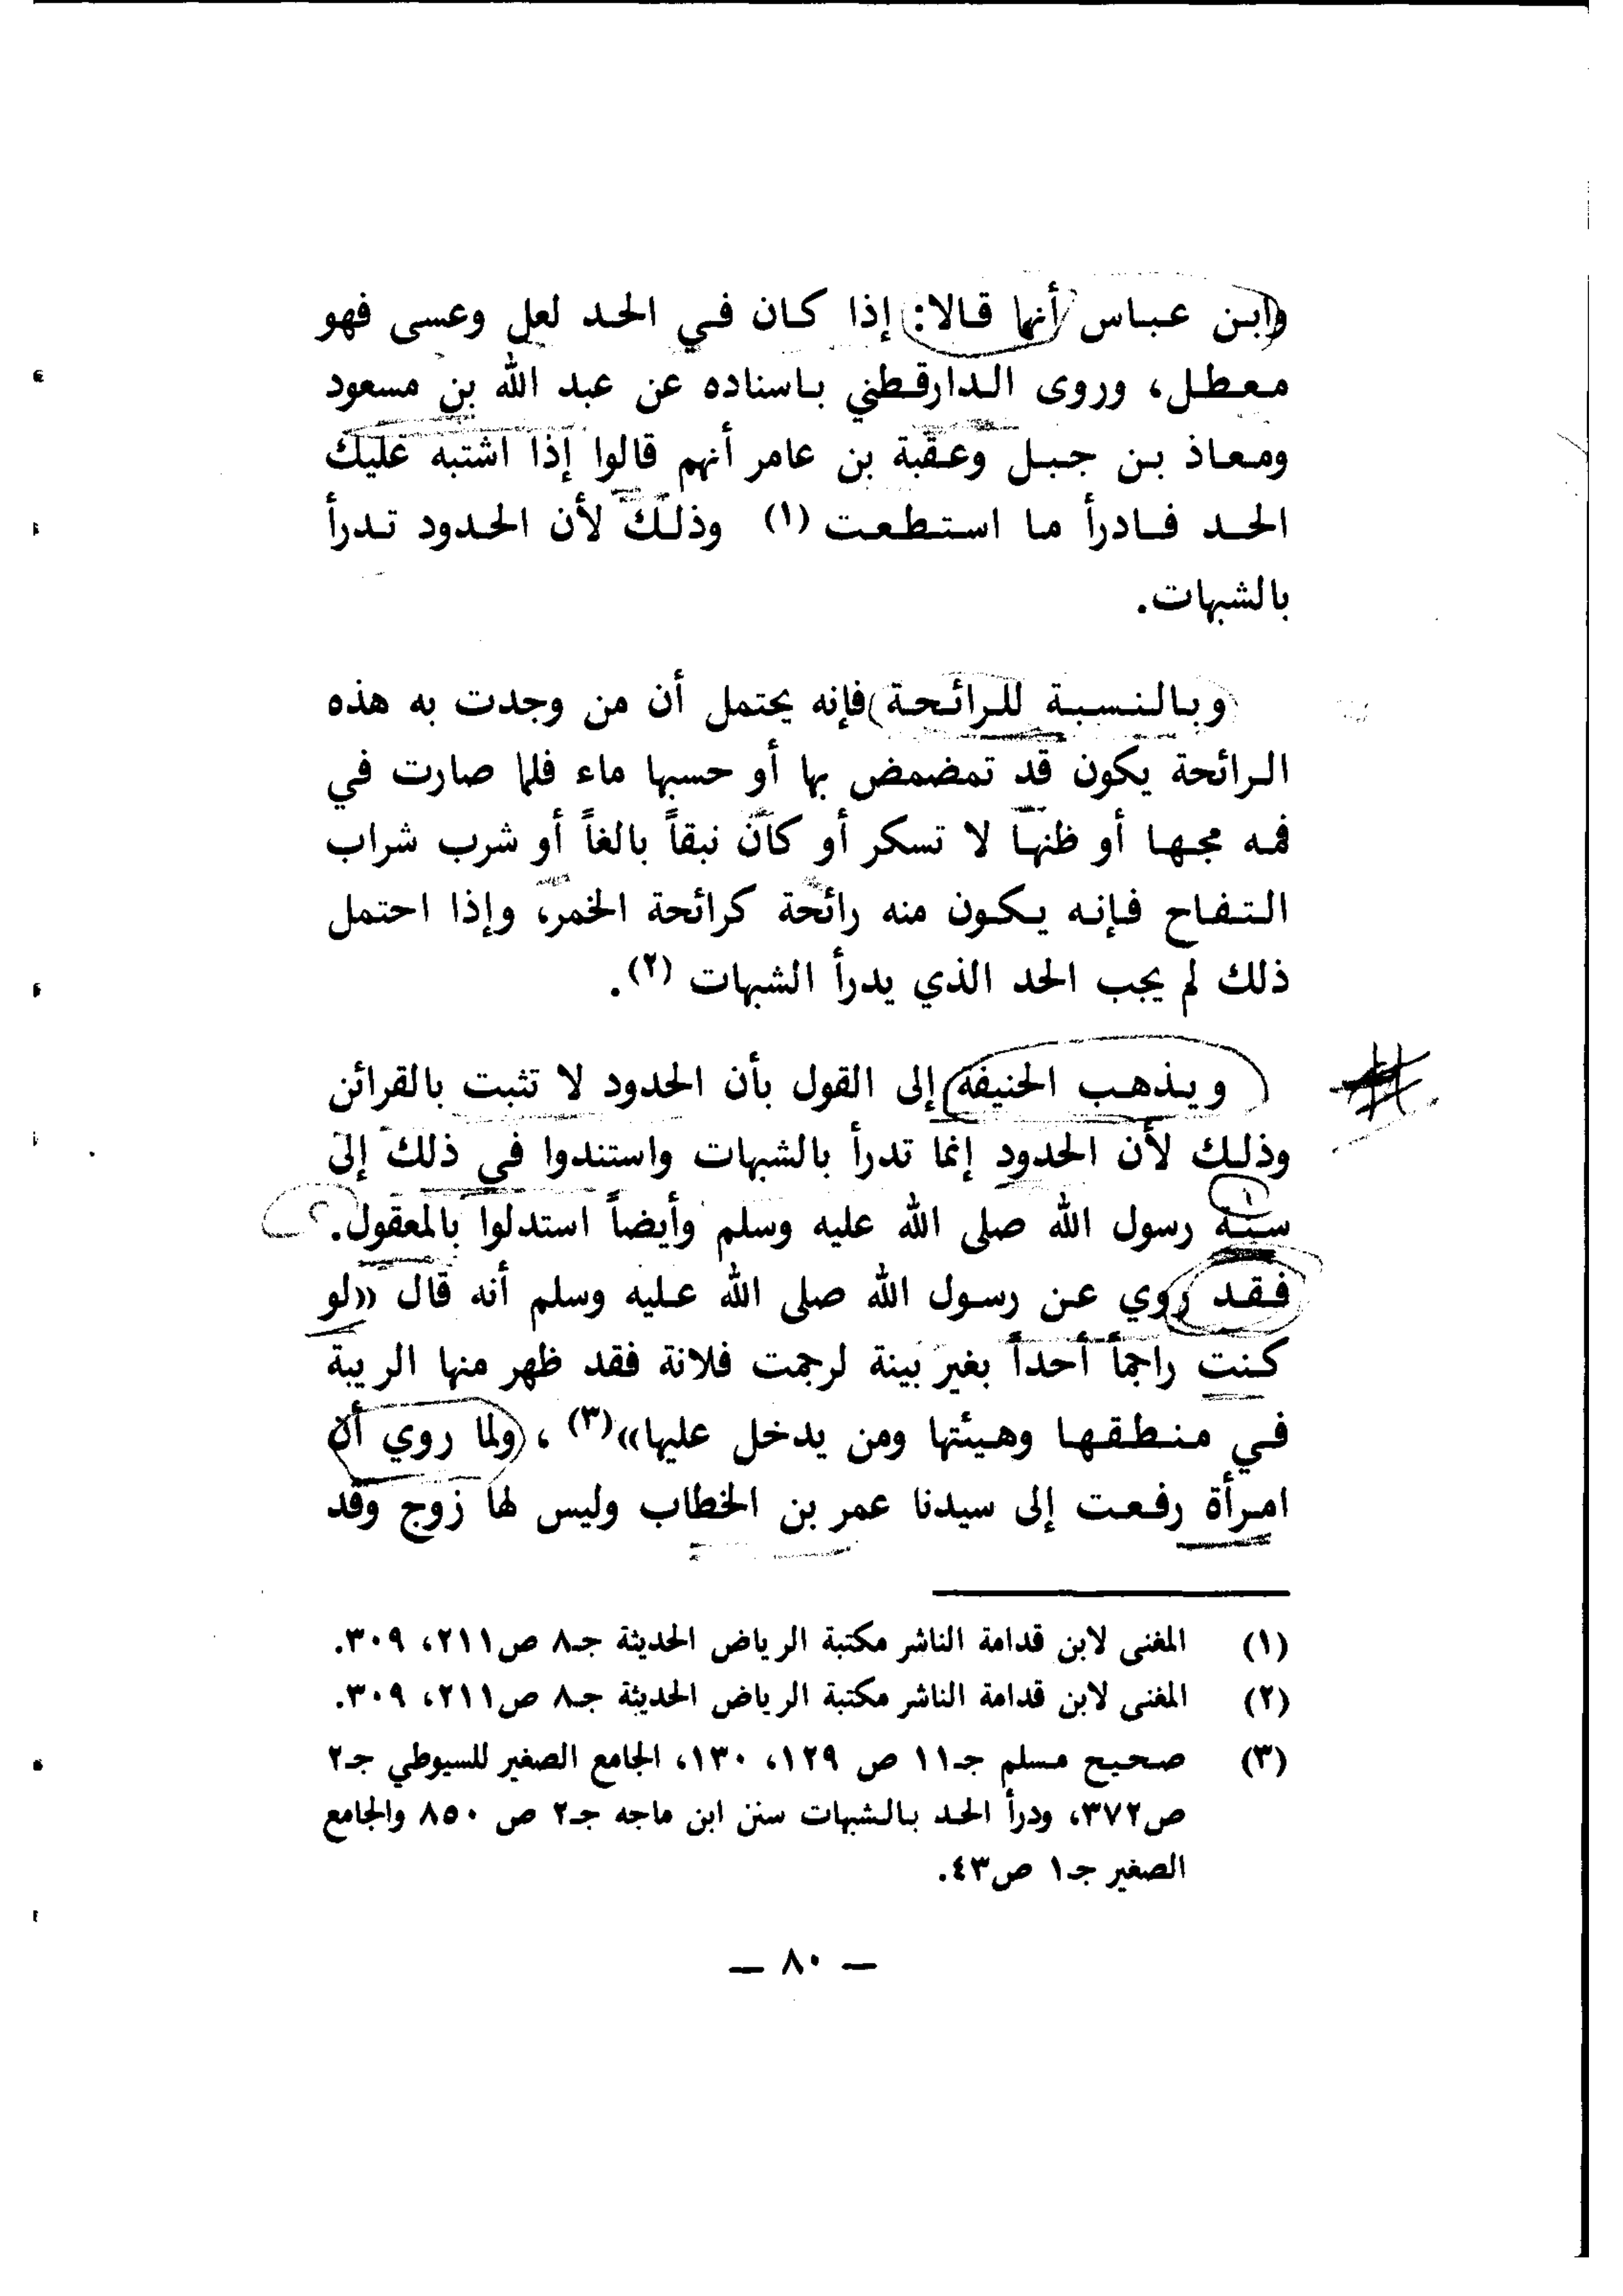 وابن عباس أنهما قالا: إذا كان في الحد لعل وعسى فهو
معطل، وروى الدارقطني باسناده عن عبد الله بن مسعود
ومعاذ بن جبل وعقبة بن عامر أنهم قالوا إذا اشتبه عليك
الحد فادرأ ما استطعت (١) وذلك لأن الحدود تدرأ
بالشبهات.
وبالنسبة للرائحة فإنه يحتمل أن من وجدت به هذه
الرائحة يكون قد تمضمض بها أو حسبها ماء فلما صارت في
فمه مجها أو ظنها لا تسكر أو كان نبقاً بالغاً أو شرب شراب
التفاح فإنه يكون منه رائحة كرائحة الخمر، وإذا احتمل
ذلك لم يجب الحد الذي يدرأ الشبهات (٢).
ويذهب الحنيفه إلى القول بأن الحدود لا تثبت بالقرائن
وذلك لأن الحدود إنما تدرأ بالشبهات واستندوا في ذلك إلى
سنة رسول الله صلى الله عليه وسلم وأيضاً استدلوا بالمعقول.
فقد روي عن رسول الله صلى الله عليه وسلم أنه قال «لو
كنت راجماً أحداً بغير بينة لرجمت فلانة فقد ظهر منها الريبة
في منطقها وهيئتها ومن يدخل عليها»(٣) ، ولما روي أن
امرأة رفعت إلى سيدنا عمر بن الخطاب وليس لها زوج وقد
(١) المغنى لابن قدامة الناشر مكتبة الرياض الحديثة جـ٨ ص٢١١، ٣٠٩.
(٢) المغنى لابن قدامة الناشر مكتبة الرياض الحديثة جـ٨ ص٢١١، ٣٠٩.
(٣) صحيح مسلم جـ١١ ص ١٢٩، ١٣٠، الجامع الصغير للسيوطي جـ٢
ص٣٧٢، ودرأ الحد بالشبهات سنن ابن ماجه جـ٢ ص ٨٥٠ والجامع
الصغير جـ١ ص٤٣.
— ٨٠ —